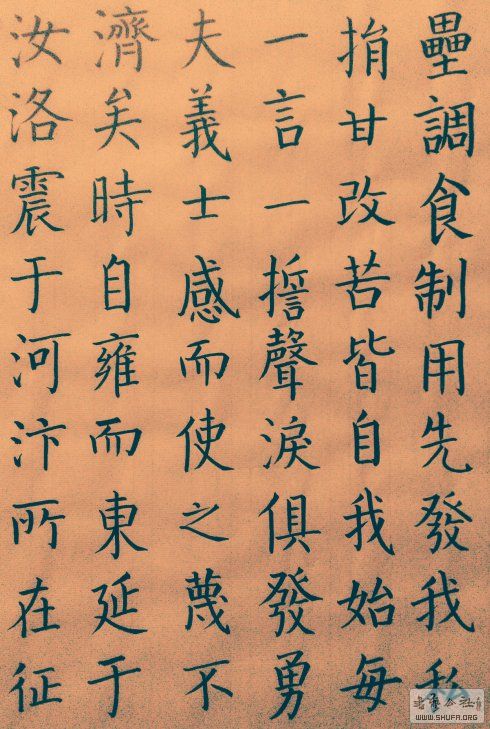 壘調食制用先發我私
捐甘改苦皆自我始每
一言一誓聲淚俱發勇
夫義士感而使之蔑不
濟矣時自雍而東延于
汝洛震于河汴所在征
WWW.SHUFA.ORG